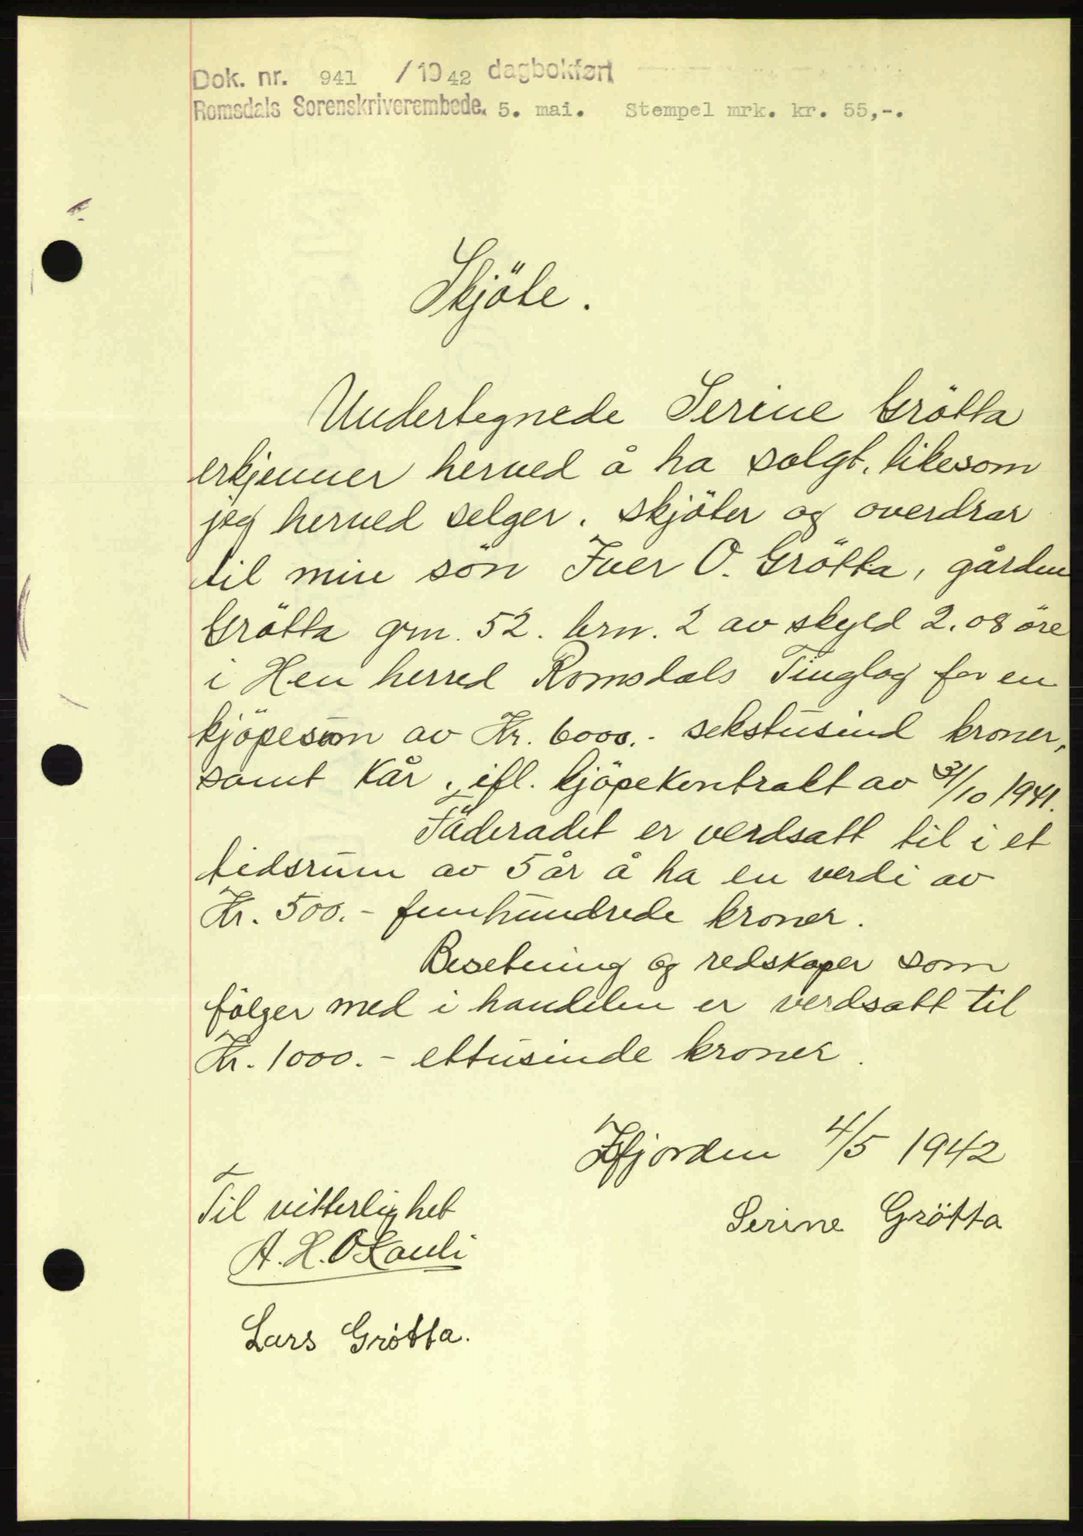 Dok. nr. 941 / 1942 dagbokført
Romsdals Sorenskriverembede. 5. mai. Stempel mrk. kr. 55,-.
Skjöte.
Undertegnede Serine Grötta
erkjenner herved å ha solgt, likesom
jeg herved selger, skjöter og overdrar
til min sön Iver O. Grötta, gården
Grötta grn. 52. brn. 2 av skyld 2.08 öre
i Hen herred Romsdals Tinglag for en
kjöpesum av Kr. 6000.- sekstusind kroner,
samt Kår, ifl. kjöpekontrakt av 31/10 1941.
Föderådet er verdsatt til i et
tidsrum av 5 år å ha en verdi av
Kr. 500.- femhundrede kroner.
Besetning og redskaper som
fölger med i handelen er verdsatt til
Kr. 1000.- ettusinde kroner.
Isfjorden 4/5 1942
Til vitterlighet
Serine Grötta
A. H.
Lars Grötta.